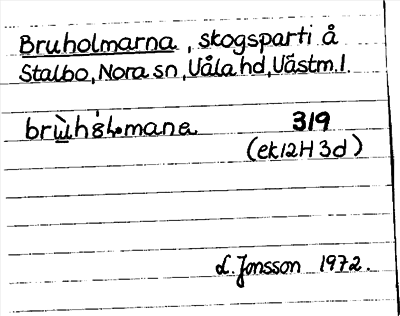 Bruholmarna, skogsparti å
Stalbo, Nora sn, Våla hd, Västm.l.
319
(ek 12H 3d)
L. Jonsson 1972.